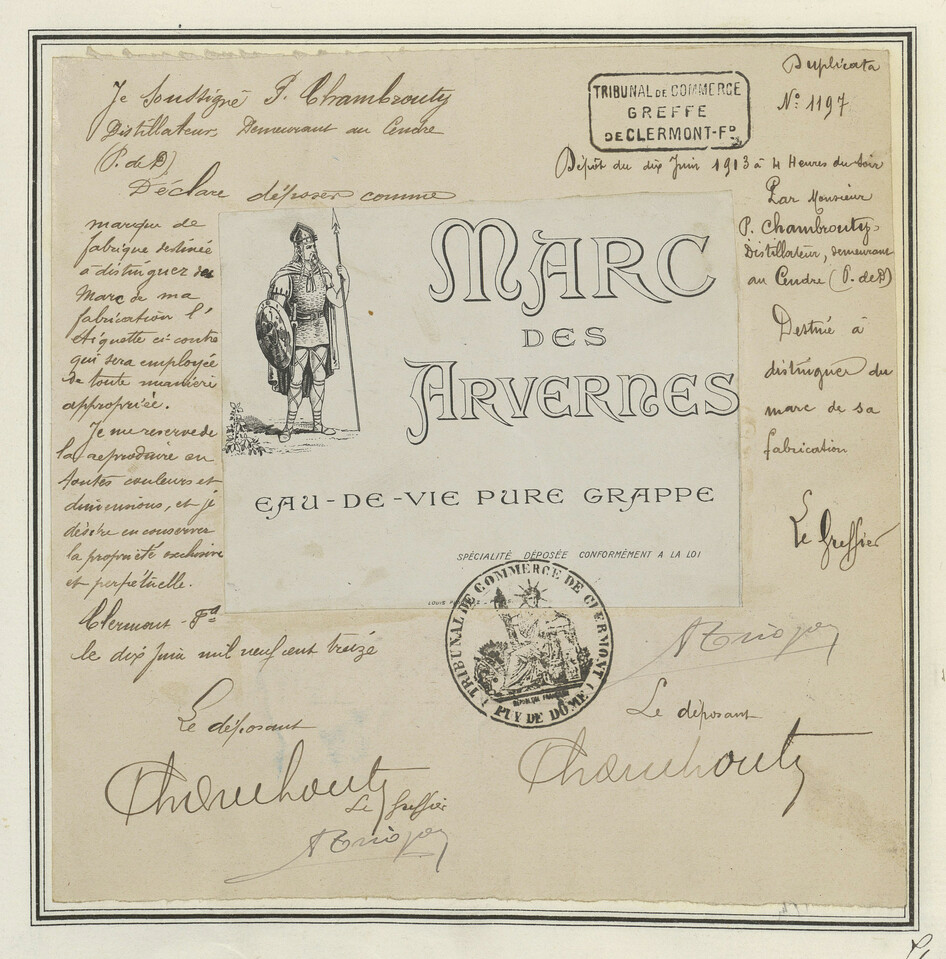 Je soussigné P. Chambrouty
Distillateur Demeurant au Cendre
(P. de D)
Déclare déposer comme
marque de
fabrique destinée
à distinguer
Marc de ma
fabrication l'
étiquette ci-contre
qui sera employée
de toute manière
appropriée.
Je me réserve de
la reproduire en
toutes couleurs et
dimensions, et je
désire en conserver
la propriété exclusive
et perpétuelle.
Clermont-Fd
le dix Juin mil neuf cent treize
Le déposant
Chambouty
Le Greffier
MARC
DES
ARVERNES
EAU-DE-VIE PURE GRAPPE
SPÉCIALITÉ DÉPOSÉE CONFORMÉMENT A LA LOI
LOUIS
TRIBUNAL DE COMMERCE DE CLERMONT
PUY DE DÔME
RÉPUBLIQUE FRANÇAISE
TRIBUNAL DE COMMERCE
GREFFE
DE CLERMONT-FD
Duplicata
No 1197
Dépôt du dix Juin 1913 à 4 Heures du soir
Par Monsieur
P. Chambrouty
Distillateur, demeurant
au Cendre (P. de D)
Destiné à
distinguer du
marc de sa
fabrication
Le Greffier
Le déposant
Chambouty